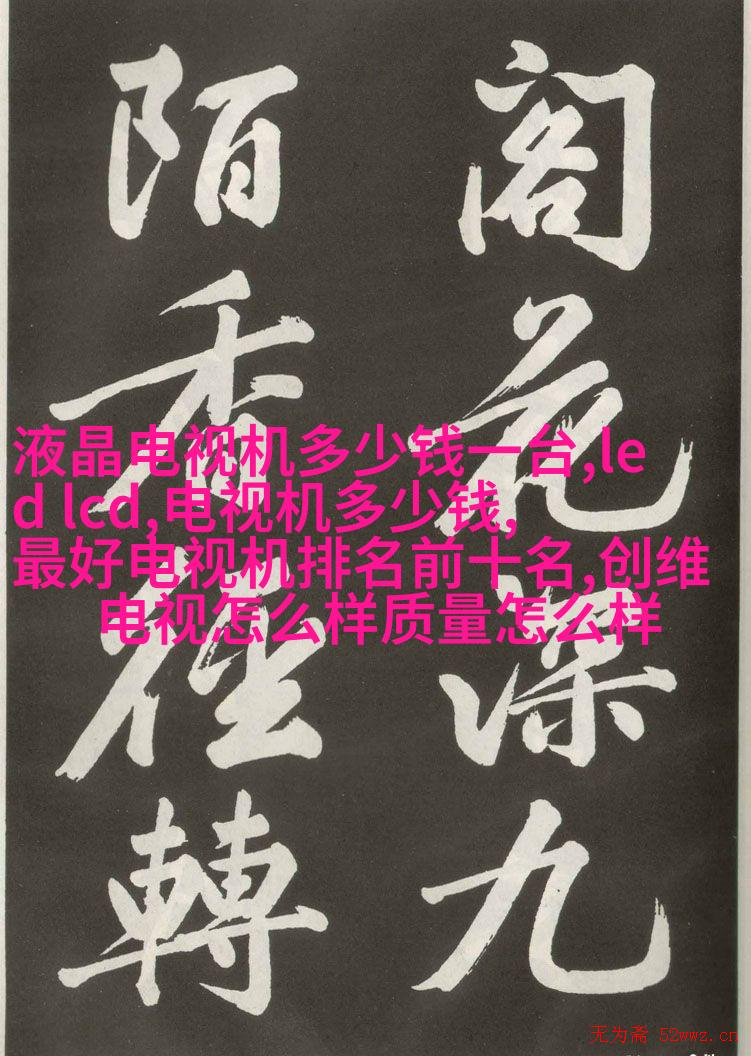 閣花深九
陌香徑轉
液晶电视机多少钱一台,le
d lcd,电视机多少钱,
最好电视机排名前十名,创维
电视怎么样质量怎么样
无为斋 52wwz.cn